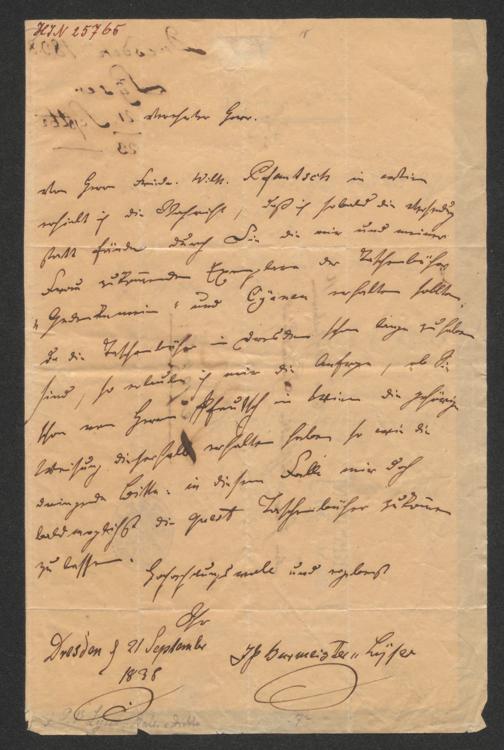 HIN 25765
Verehrter Herr.
Von Herrn Friedr. Wilh. Pfautsch in Wien
erhielt ich die Nachricht, daß ich sobald die Versendung
statt fände durch Sie die mir und meiner
Frau zukommenden Exemplare der Taschenbücher
"Gedenkemein" und Cyanen erhalten sollten,
da die Taschenbücher in Dresden schon lange zu haben
sind, so erlaube ich mir die Anfrage, ob Sie
schon von Herrn Pfautsch in Wien die gehörige
Weisung dieserhalb erhalten haben so wie die
dringende Bitte: in diesem Falle mir doch
bald möglichst die quest Taschenbücher zukommen
zu lassen.
Hochachtungsvoll und ergebenst
Ihr
Dresden d 21 September
1838
JP Burmeister-Lyser